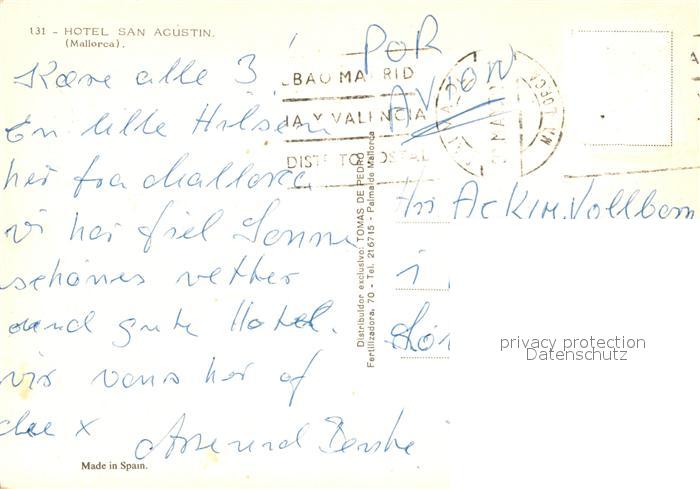 131 - HOTEL SAN AGUSTIN.
(Mallorca).
Kære alle 3!
En lille Hilsen
her fra Mallorca
vi har fiel Sonne
schönes vetter
und gute Hotel.
vis vans her af
x
Made in Spain.
POR
AVION
BAO MADRID
IA Y VALENCIA
DIST TO POSTAL
MALLORCA
Distribuidor exclusivo: TOMAS DE PEDRO
Fertilizadora, 70 - Tel. 216715 - Palma de Mallorca
Hr Ackim. Vollbom
i
privacy protection
Datenschutz